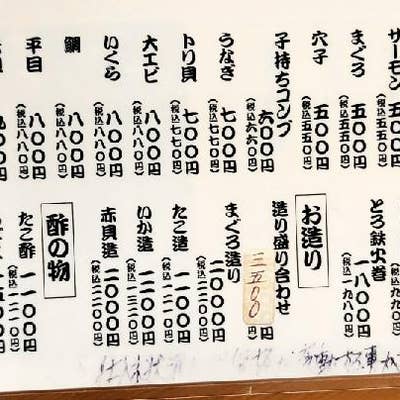 サーモン 五
まぐろ 五〇〇円
(税込五五〇円)
穴子 五〇〇円
(税込五五〇円)
子持ちコンブ 六〇〇円
(税込六六〇円)
うなぎ 七〇〇円
(税込七七〇円)
トリ貝 七〇〇円
(税込七七〇円)
大エビ 八〇〇円
(税込八八〇円)
いくら 八〇〇円
(税込八八〇円)
鯛 八〇〇円
(税込八八〇円)
平目 八〇〇円
(税込八八〇円)
とろ鉄火巻 一八〇〇円
(税込一九八〇円)
お造り
造り盛り合わせ 三五〇〇円
まぐろ造り 二〇〇〇円
(税込二二〇〇円)
たこ造 一一〇〇円
いか造 一二〇〇円
(税込一三二〇円)
赤貝造 二〇〇〇円
(税込二二〇〇円)
酢の物
たこ酢 一一〇〇円
(税込一二一〇円)